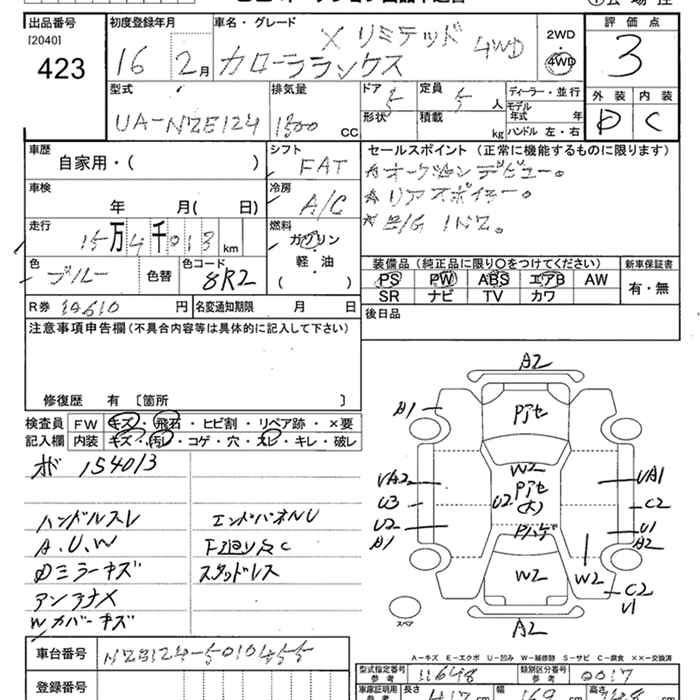 出品番号 初度登録年月 車名・グレード 評価点
[2040]
423
16 2月
X リミテッド 4WD
カローラランクス
2WD
4WD
3
型式
UA-NZE124
排気量
1500 cc
ドア 5
形状
定員 5 人
積載 kg
ディーラー・並行
モデル
年式 年
ハンドル 左・右
外装 内装
D C
車歴
自家用・( )
シフト
FAT
セールスポイント (正常に機能するものに限ります)
車検
年 月( 日)
冷房
A/C
★リアスポイラー。
走行
15万4千013km
燃料
ガソリン
軽・油
( )
色
ブルー
色替
色コード
8R2
装備品 (純正品に限り○をつけてください)
新車保証書
PS PW ABS エアB AW
SR ナビ TV カワ
有・無
R券 円
名変通知期限 月 日
後日品
注意事項申告欄(不具合内容等は具体的に記入して下さい)
修復歴 有 [箇所 ]
検査員
記入欄
FW キズ・飛石・ヒビ割・リペア跡・×要
内装 キズ・汚レ・コゲ・穴・スレ・キレ・破レ
ボ 154013
ハンドルスレ
A.U.W
Dミラーキズ
アンテナX
Wカバーキズ
エンドパネルU
F廻りSC
スタッドレス
A2
A1
Pアセ
W2
Pアセ
(大)
U2
Pハゲ
W2
UA2
U3
U2
A1
UA1
C2
U1
A2
W2
C2
U1
A2
スペア
A-キズ E-エクボ U-凹み W-補修跡 S-サビ C-腐食 ××-交換済
車台番号
NZE124-5010455
登録番号
型式指定番号
参考
11648
類別区分番号
参考
0017
車庫証明用
参考
長さ
417cm
幅
169cm
高さ